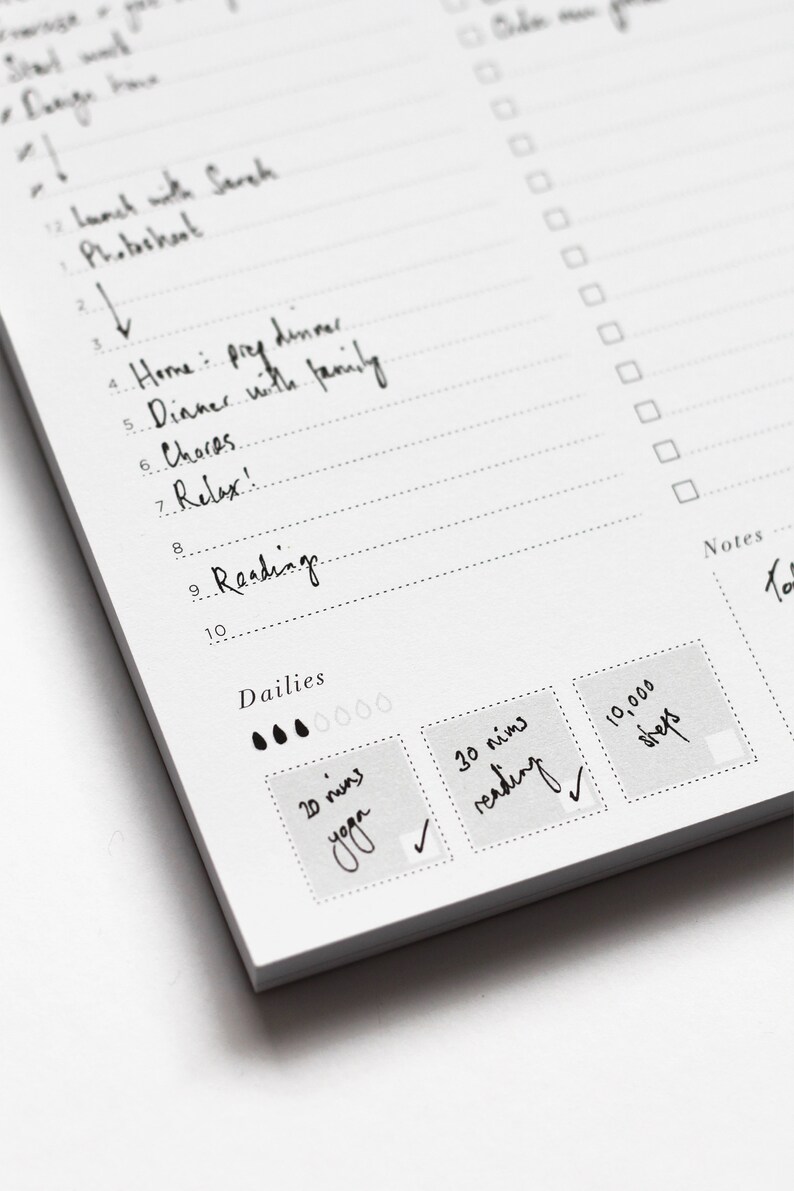 Start work
Design time
12 Lunch with Sarah
1 Photoshoot
2
3
4 Home : prep dinner
5 Dinner with family
6 Chores
7 Relax!
8
9 Reading
10
Notes
Dailies
20 mins
yoga
✓
30 mins
reading
✓
10,000
steps